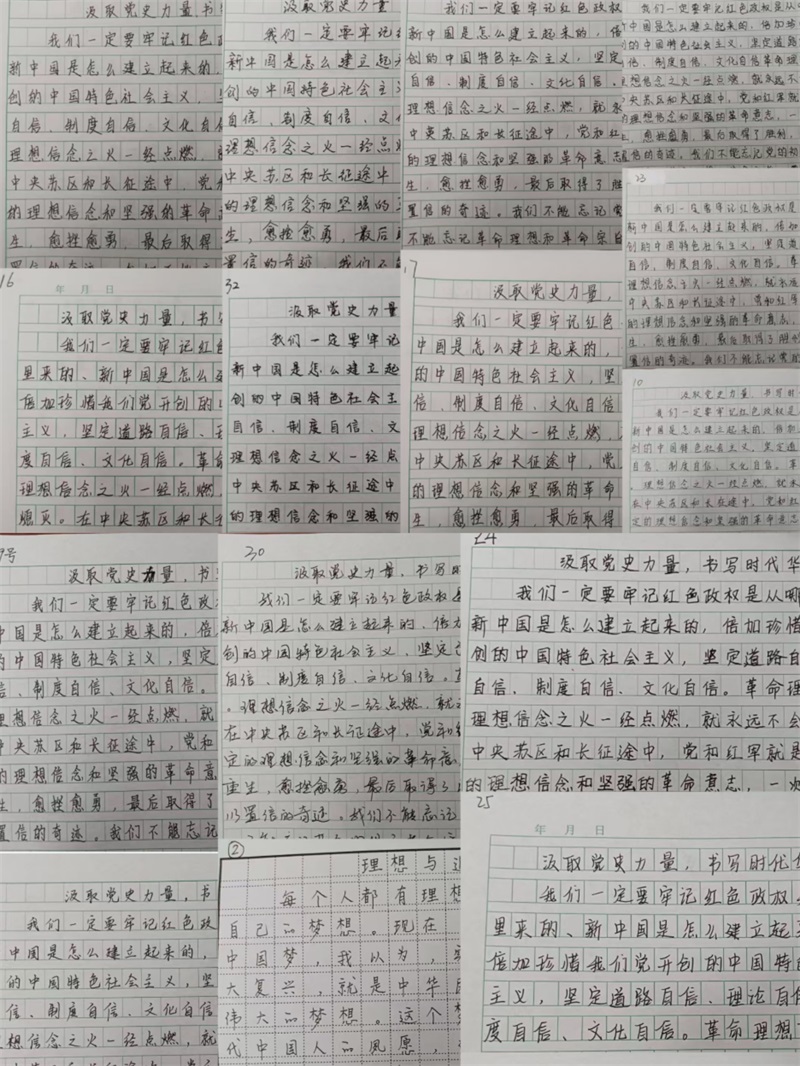 汲取党史力量，书
我们一定要牢记红色
新中国是怎么建立起来的
创的中国特色社会主义，坚
自信、制度自信、文化自信
理想信念之火一经点燃，就
中央苏区和长征途中，党
的理想信念和坚强的革命
生，愈挫愈勇，最后取得
汲取党史力量
我们一定要牢记
新中国是怎么建立起
创的中国特色社会主
自信、制度自信、文
理想信念之火一经点
中央苏区和长征途中
的理想信念和坚强的
生，愈挫愈勇，最后
置信的奇迹，我们不
我们一定要牢记红色政权
中国是怎么建立起来的，
创的中国特色社会主义，坚定
自信、制度自信、文化自信。
理想信念之火一经点燃，就永
中央苏区和长征途中，党和红
的理想信念和坚强革命意志
生，愈挫愈勇，最后取得了胜
置信的奇迹。我们不能忘记党
不能忘记革命理想和革命宗旨
我们一定要牢记红色政权是从
中国是怎么建立起来的，倍加珍
的中国特色社会主义，坚定道路
信、制度自信、文化自信革命理
想信念之火一经点燃，就永远不
央苏区和长征途中，党和红军就
理想信念和坚强的革命意志，一
，愈挫愈勇，最后取得了胜利，
信的奇迹。我们不能忘记党的初
13
我们一定要牢记红色政权是
新中国是怎么建立起来的，倍加
创的中国特色社会主义，坚定道
自信、制度自信、文化自信。革
理想信念之火一经点燃，就永远
中央苏区和长征途中，党和红军
的理想信念和坚强的革命意志，
生，愈挫愈勇，最后取得了胜利
置信的奇迹。我们不能忘记党的
16
年 月 日
汲取党史力量，书写
我们一定要牢记红色
里来的、新中国是怎么建
倍加珍惜我们党开创的中
主义，坚定道路自信、理
度自信、文化自信。革命
理想信念之火一经点燃，
熄灭。在中央苏区和长征
32
汲取党史力量
我们一定要牢记
新中国是怎么建立起
创的中国特色社会主
自信、制度自信、文
理想信念之火一经点
中央苏区和长征途中
的理想信念和坚强的
17
汲取党史力量，
我们一定要牢记红色
中国是怎么建立起来的，
的中国特色社会主义，坚
信、制度自信、文化自信
理想信念之火一经点燃，
中央苏区和长征途中，党
的理想信念和坚强的革命
生，愈挫愈勇，最后取得
10
汲取党史力量，书写时
我们一定要牢记红色政权是
新中国是怎么建立起来的，倍加
创的中国特色社会主义，坚定道
自信、制度自信、文化自信。革
理想信念之火一经点燃，就永
在中央苏区和长征途中，党和红
定的理想信念和坚强的革命意志
号
汲取党史力量，书
我们一定要牢记红色政
中国是怎么建立起来的，倍
的中国特色社会主义，坚定
信、制度自信、文化自信。
想信念之火一经点燃，就
中央苏区和长征途牛，党和
的理想信念和坚强的革命意
生，愈挫愈勇，最后取得了
置信的奇迹。我们不能忘记
30
汲取党史力量，书写时
我们一定要牢记红色政权是
新中国是怎么建立起来的、倍加
创的中国特色社会主义，坚定道
自信、制度自信、文化自信。革
理想信念之火一经点燃，就永
在中央苏区和长征途中，党和红
定的理想信念和坚强的革命意
重生，愈挫愈勇，最后取得了
以置信的奇迹。我们不能忘记
24
汲取党史力量，书写时代华
我们一定要牢记红色政权是从哪
新中国是怎么建立起来的，倍加珍惜
创的中国特色社会主义，坚定道路自
自信、制度自信、文化自信。革命理
理想信念之火一经点燃，就永远不会
中央苏区和长征途中，党和红军就是
的理想信念和坚强的革命意志，一次
25
年 月 日
汲取党史力量，书写时代华
我们一定要牢记红色政权从
里来的、新中国是怎么建立起
倍加珍惜我们党开创的中国特
主义，坚定道路自信、理论自
度自信、文化自信。革命理想
汲取党史力量，书
我们一定要牢记红色政
中国是怎么建立起来的，
的中国特色社会主义，坚
信、制度自信、文化自信
想信念之火一经点燃，就
②
理想与追
每个人都有理想
自己的梦想。现在
中国梦，我以为，实
大复兴，就是中华民
伟大的梦想。这个梦
代中国人的夙愿，